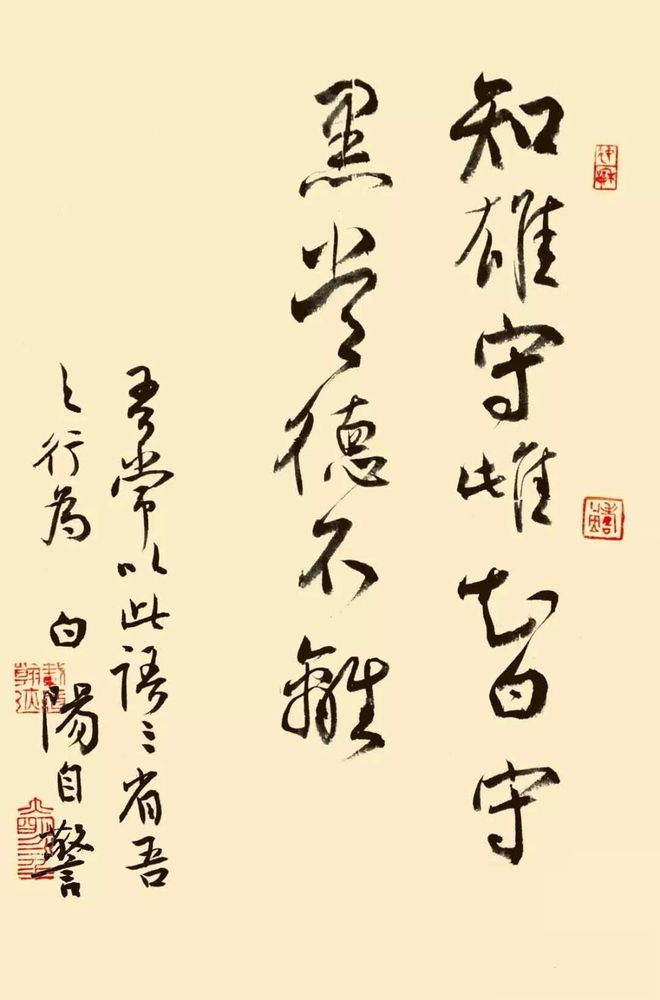 知雄守雌知白守
黑常德不離
吾常以此语〻省吾
之行为 白陽自警